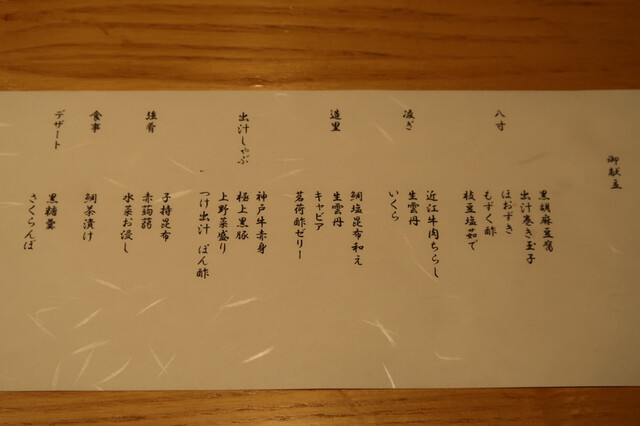 御献立
八寸
黒胡麻豆腐
出汁巻き玉子
ほおずき
もずく酢
枝豆塩茹で
凌ぎ
近江牛肉ちらし
生雲丹
いくら
造里
鯛塩昆布和え
生雲丹
キャビア
茗荷酢ゼリー
出汁しゃぶ
神戸牛赤身
極上黒豚
上野菜盛り
つけ出汁 ぽん酢
強肴
子持昆布
赤蒟蒻
水菜お浸し
食事
鯛茶漬け
デザート
黒糖羹
さくらんぼ